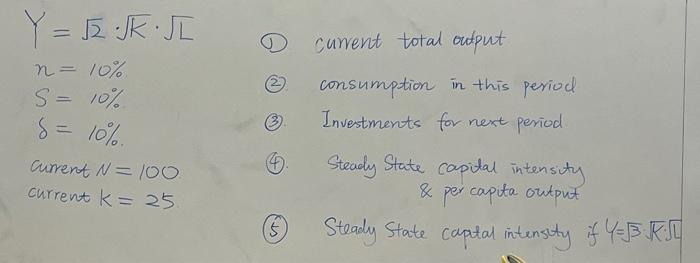 Y = √2 · √K · √L
n = 10%
S = 10%
δ = 10%.
current N = 100
current k = 25.
① current total output
②. consumption in this period
③. Investments for next period.
④. Steady State capital intensity
& per capita output
⑤ Steady State capital intensity if Y=√3·√K·√L